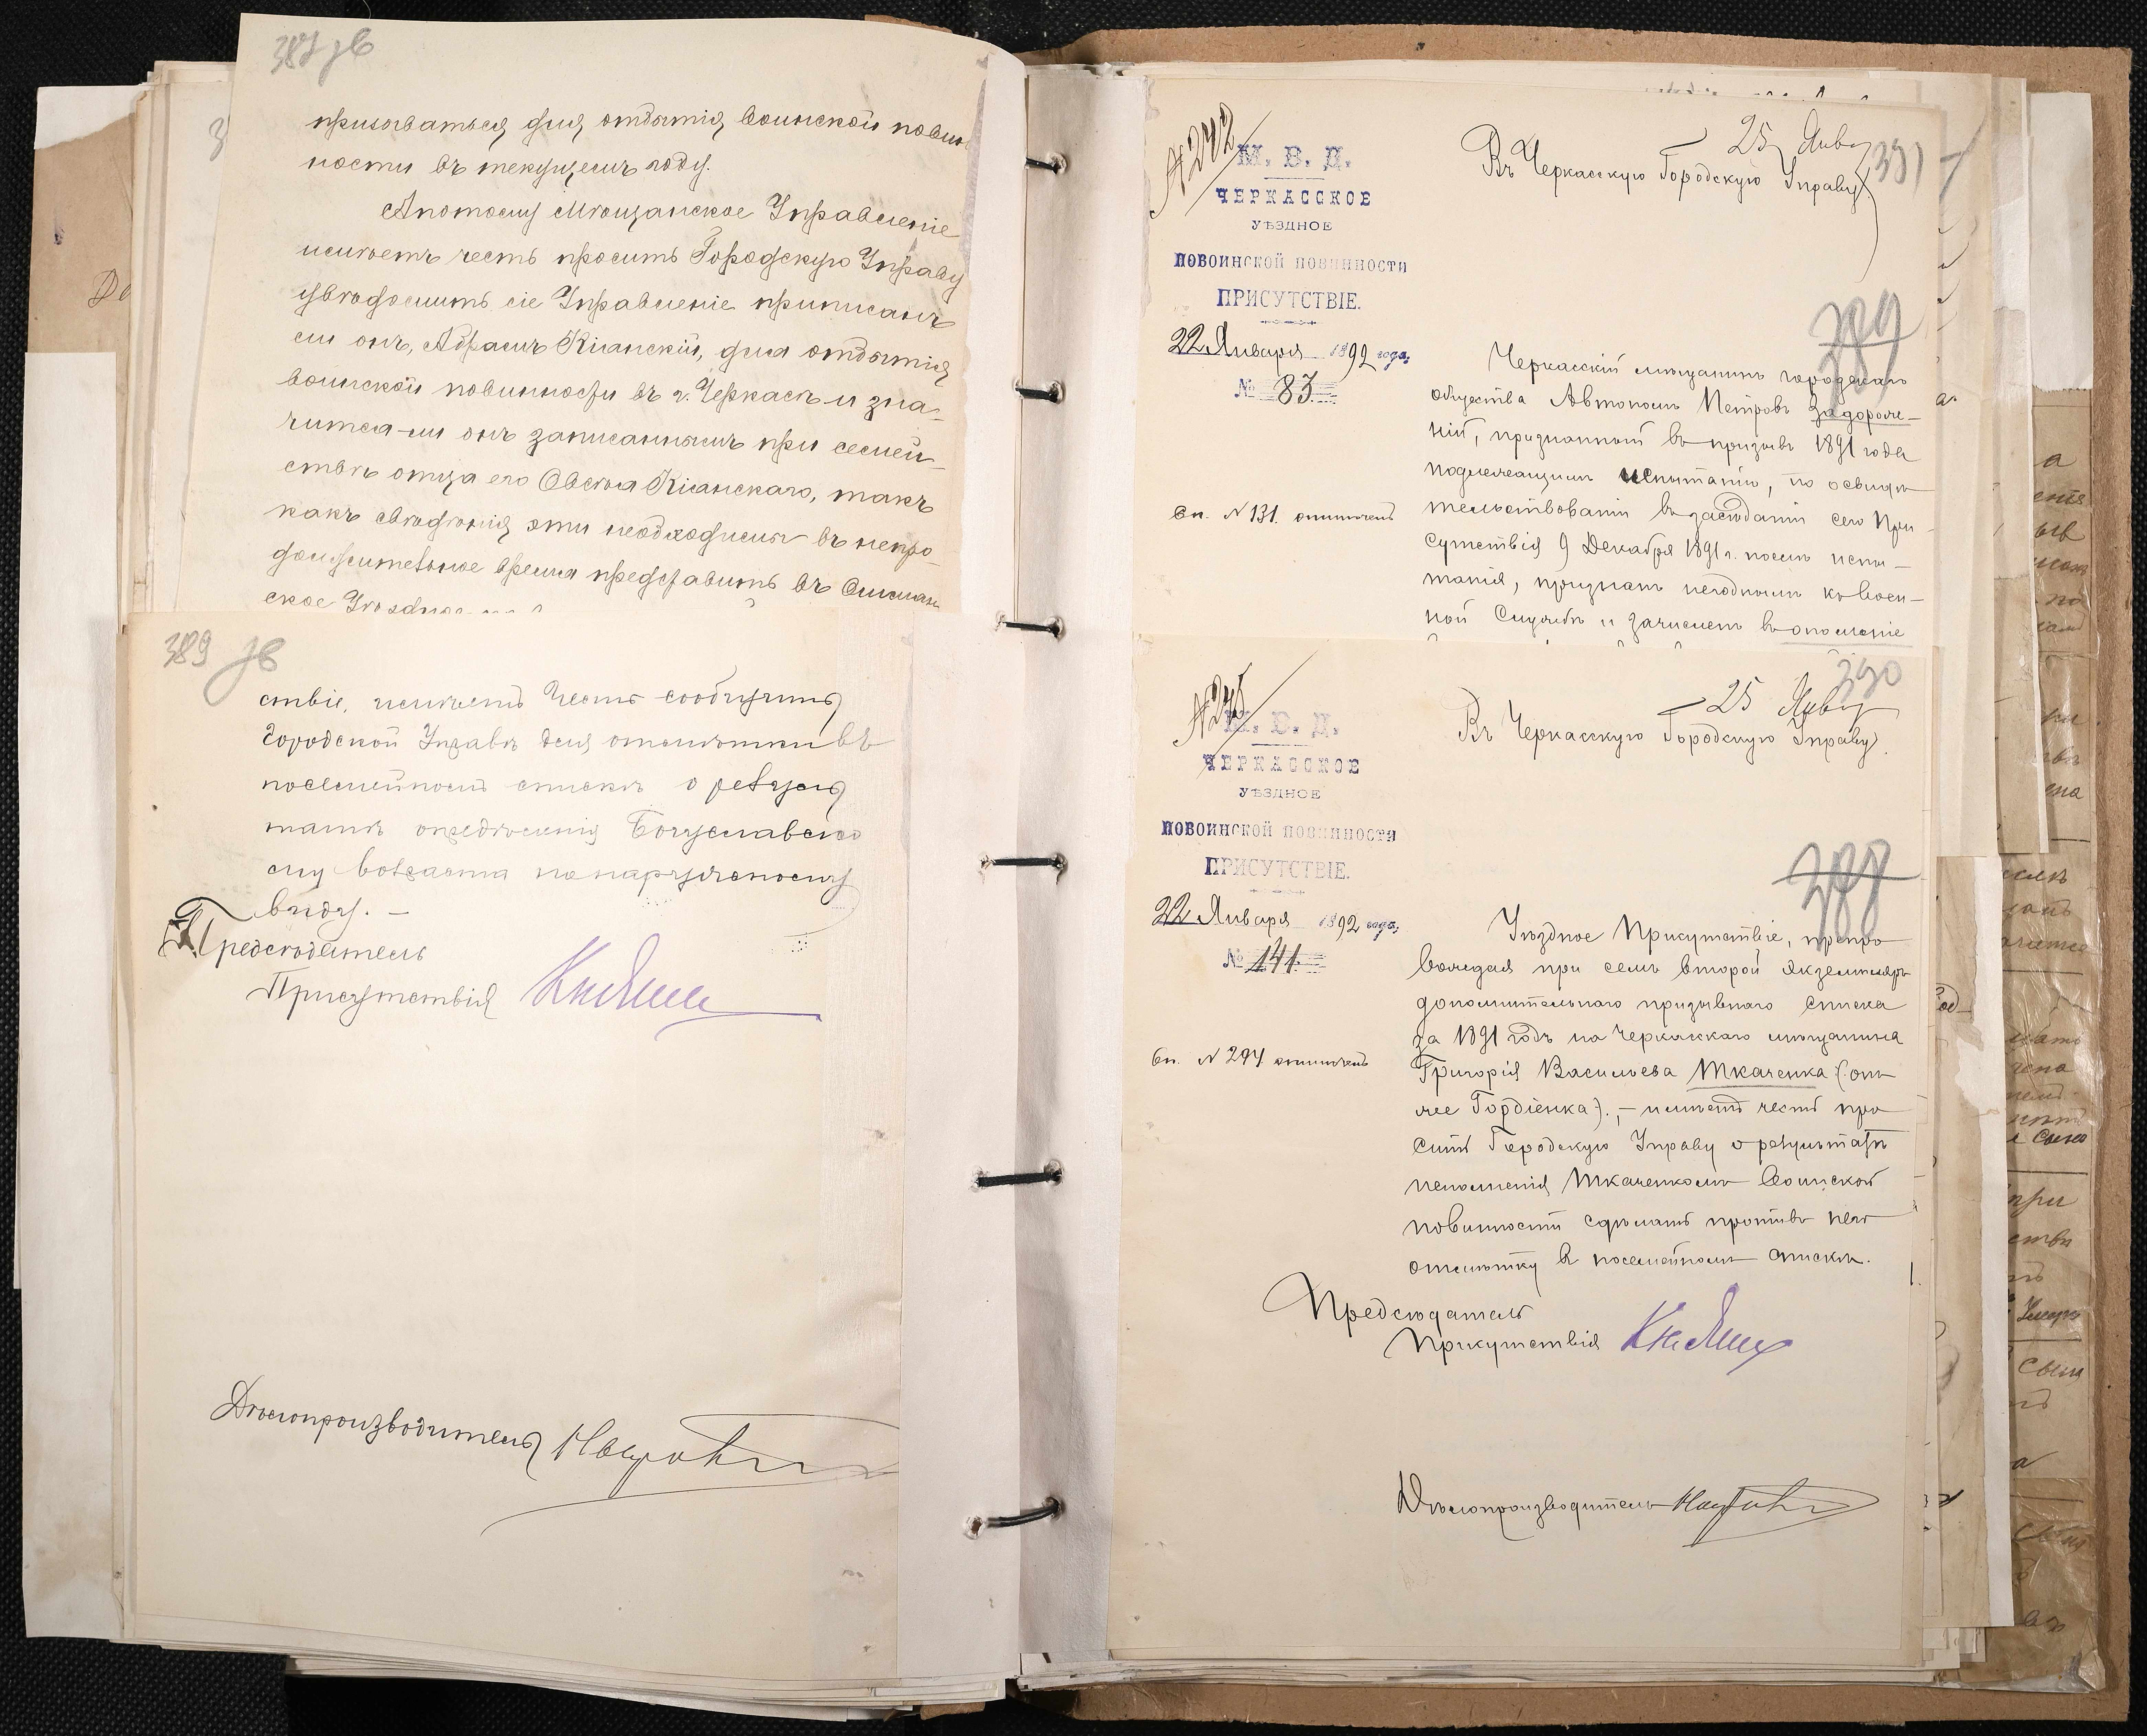 387 об
призываться для отбытія воинской повин
ности въ текущемъ году.
А потому Мѣщанское Управленіе
имѣетъ честь просить Городскую Управу
увѣдомить сіе Управленіе приписанъ
ли онъ, Абрамъ Кіанскій, для отбытія
воинской повинности въ г. Черкасъ и зна-
чится-ли онъ записаннымъ при семей-
ствѣ отца его Овсѣя Кіанскаго, такъ
какъ свѣдѣнія эти необходимы въ непро-
должительное время представить въ
ское Уѣздное
389 об
ствіе, имѣетъ честь сообщить
Городской Управѣ для отмѣтки въ
посемейномъ спискѣ о резуль
татѣ опредѣленія Богуславско
му возраста по наружному
виду. —
Предсѣдатель
Присутствія
Дѣлопроизводитель
№ 242
М. В. Д.
ЧЕРКАССКОЕ
УѢЗДНОЕ
ПО ВОИНСКОЙ ПОВИННОСТИ
ПРИСУТСТВІЕ.
22 Января 1892 года.
№ 83
25 Янв
391
Въ Черкасскую Городскую Управу.
389
Черкасскій мѣщанинъ городскаго
общества Автономъ Петровъ Задорож-
ній, признанный въ призывъ 1891 года
подлежащимъ испытанію, по освидѣ
тельствованіи въ засѣданіи сего При-
сутствія 9 Декабря 1891 г. послѣ испы-
танія, признанъ негоднымъ къ воен-
ной службѣ и зачисленъ въ ополченіе
Сп. № 131. отмѣченъ
№ 245
М. В. Д.
ЧЕРКАССКОЕ
УѢЗДНОЕ
ПО ВОИНСКОЙ ПОВИННОСТИ
ПРИСУТСТВІЕ.
22 Января 1892 года.
№ 141
390
25 Янв
Въ Черкасскую Городскую Управу.
388
Уѣздное Присутствіе, препро
вождая при семъ второй экземпляръ
дополнительнаго призывнаго списка
за 1891 годъ на Черкасскаго мѣщанина
Григорія Васильева Ткаченка (онъ
же Гордіенка), — имѣетъ честь про
сить Городскую Управу о результатѣ
исполненія Ткаченкомъ воинской
повинности сдѣлать противъ него
отмѣтку въ посемейномъ спискѣ.
Сп. № 294 отмѣченъ
Предсѣдатель
Присутствія
Дѣлопроизводитель